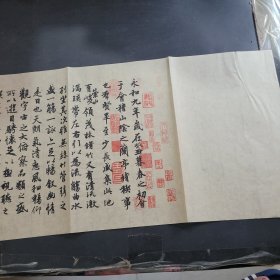 永和九年歲在癸丑暮春之初會
于會稽山陰之蘭亭脩禊事
也群賢畢至少長咸集此地
有峻領茂林脩竹又有清流激
湍暎帶左右引以為流觴曲水
列坐其次雖無絲竹管弦之
盛一觴一詠亦足以暢敘幽情
是日也天朗氣清惠風和暢仰
觀宇宙之大俯察品類之盛
所以遊目騁懷足以極視聽之